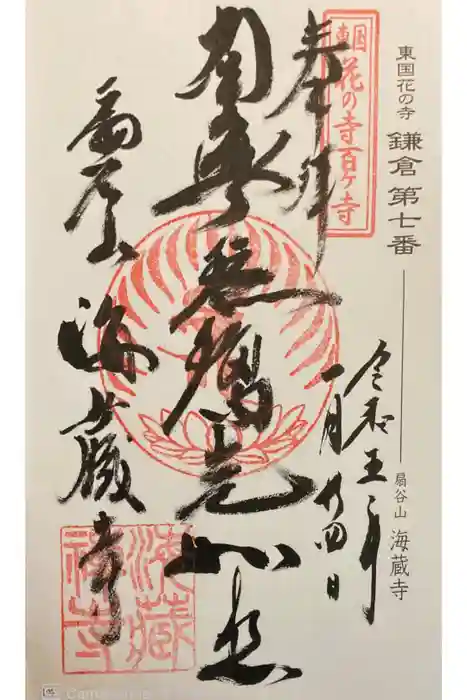 東国花の寺
鎌倉 第七番
扇谷山 海蔵寺
東国
花の寺百ヶ寺
奉拝
令和五年
一月 四日
南無瑠璃光如来
扇谷山
海蔵寺
海蔵
禅寺